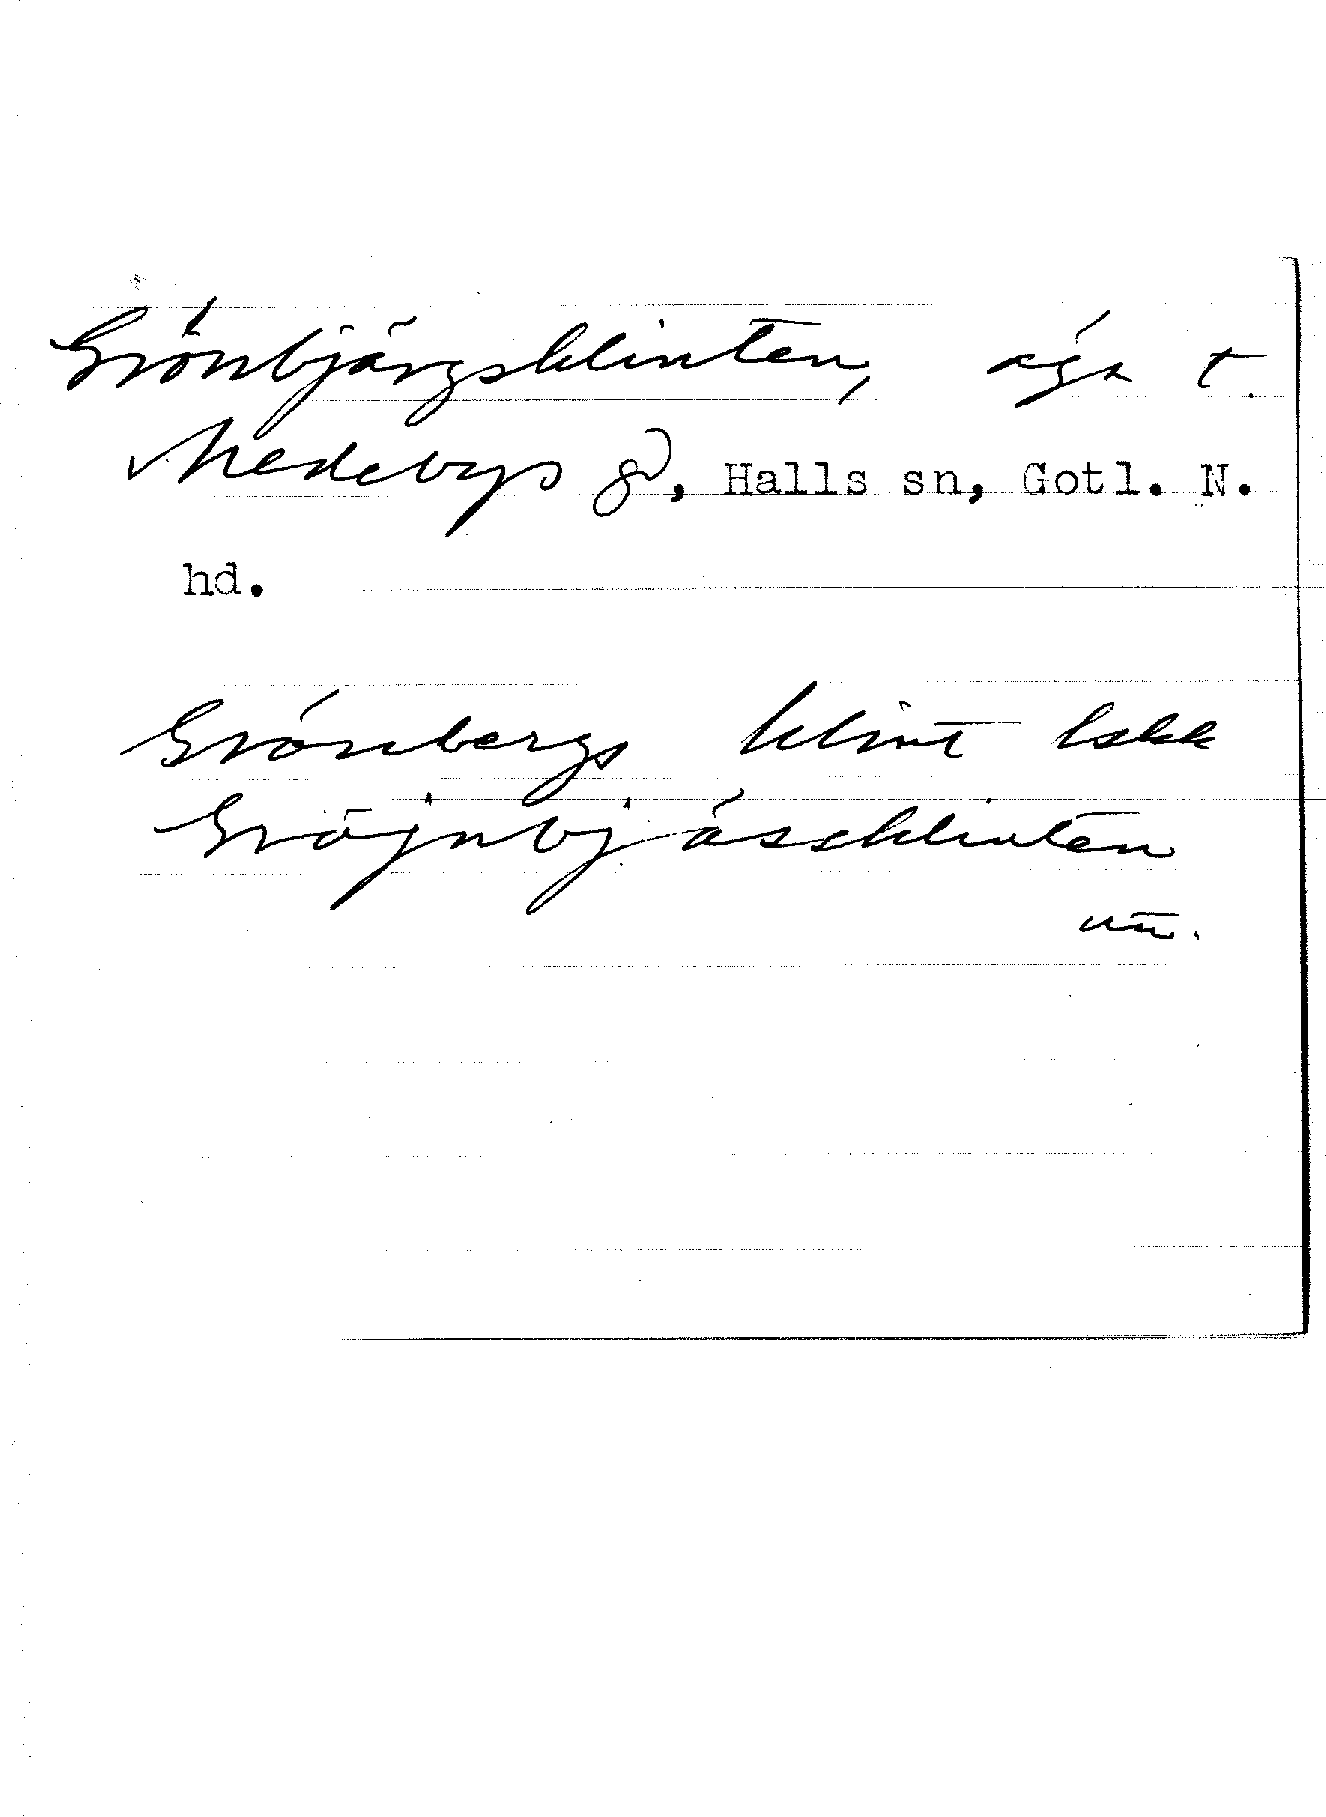 Grönbjärgsklinten, äga t.
Medebys gd, Halls sn, Gotl. N.
hd.
Grönbergs klint Lskk
Gröjnbjässklinten